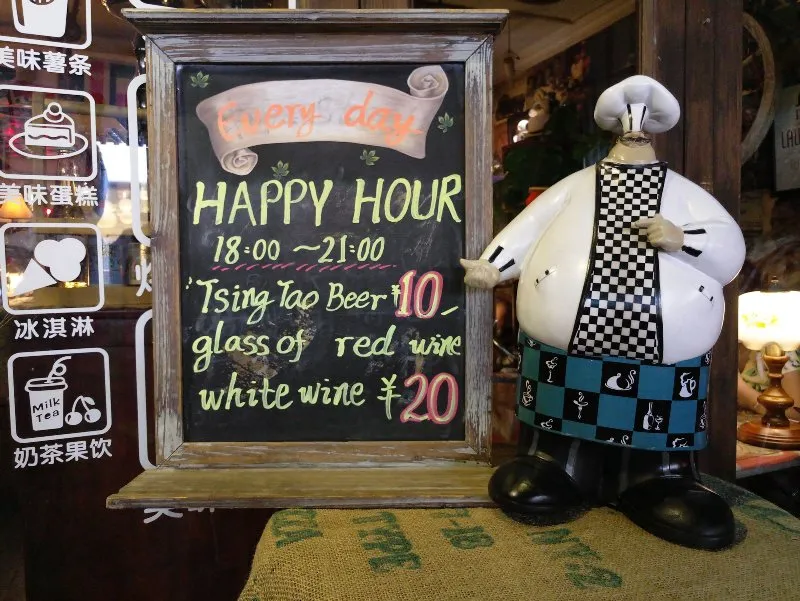 美味薯条
美味蛋糕
冰淇淋
Milk
Tea
奶茶果饮
Every day
HAPPY HOUR
18:00 ~21:00
Tsing Tao Beer ¥10
glass of red wine
white wine ¥20
TYPE